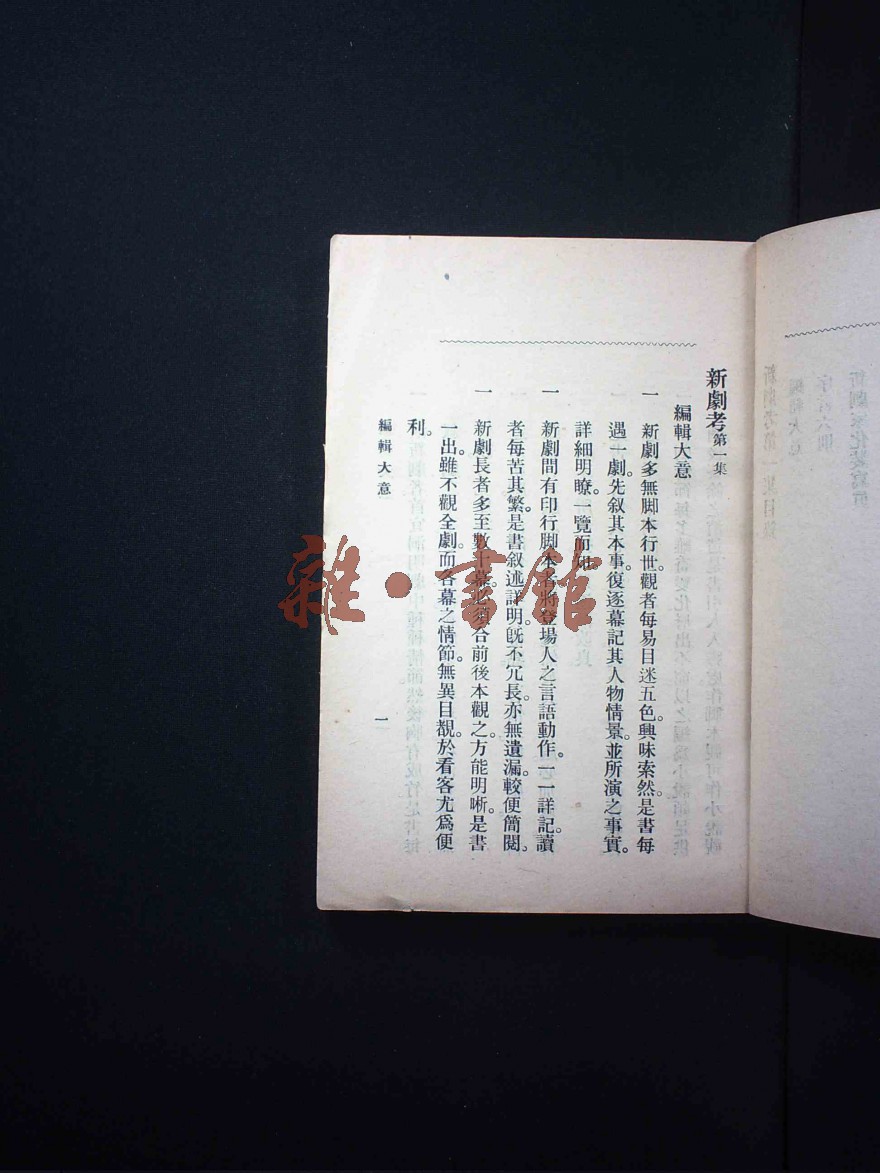 新劇考第一集
編輯大意
一 新劇多無脚本行世觀者每易目迷五色。興味索然是書每
遇一劇。先叙其本事。復逐幕記其人物情景。並所演之事實。
詳細明瞭。一覽而知。
一 新劇間有印行脚本者將登場人之言語動作。一一詳記。讀
者每苦其繁。是書叙述詳明。旣不冗長。亦無遺漏。較便簡閱。
一 新劇長者多至數十幕。必須合前後本觀之。方能明晰。是書
一出。雖不觀全劇。而各幕之情節。無異目覩。於看客尤爲便
利。
編輯大意
一
雜·書館